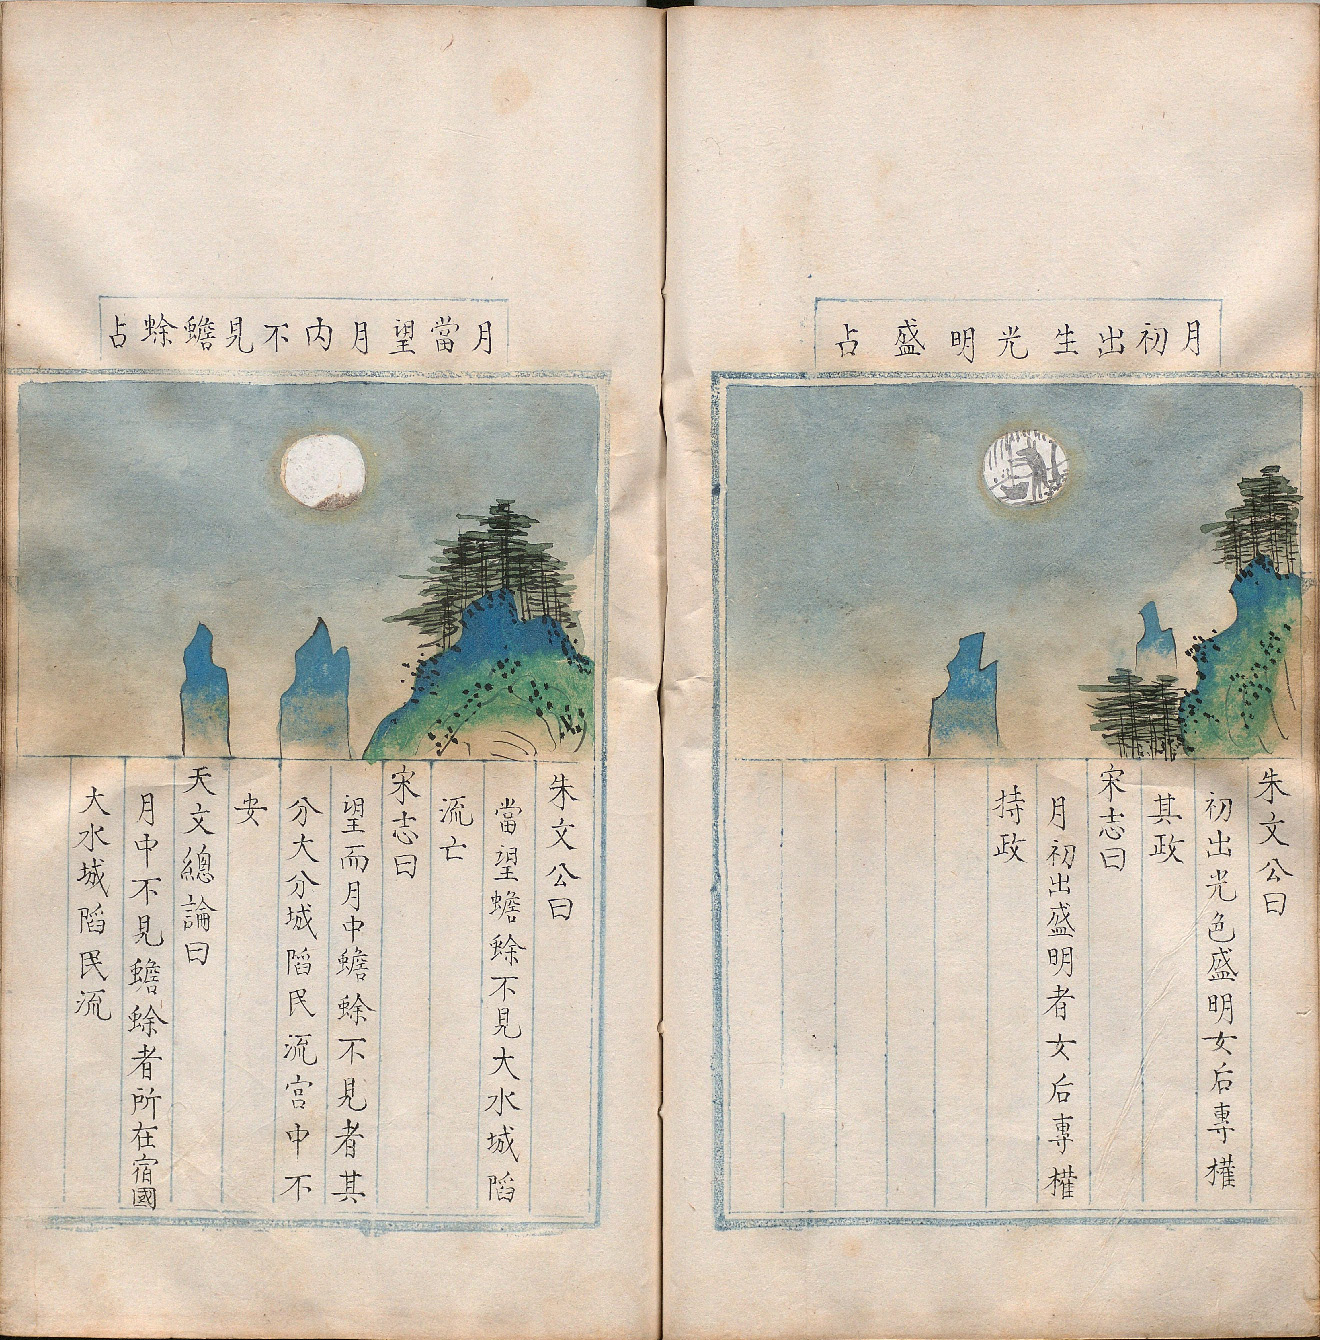 月初出生光明盛占
朱文公曰
初出光色盛明女后專權
其政
宋志曰
月初出盛明者女后專權
持政
月當望月内不見蟾蜍占
朱文公曰
當望蟾蜍不見大水城陷
流亡
宋志曰
望而月中蟾蜍不見者其
分大分城陷民流宮中不
安
天文總論曰
月中不見蟾蜍者所在宿國
大水城陷民流